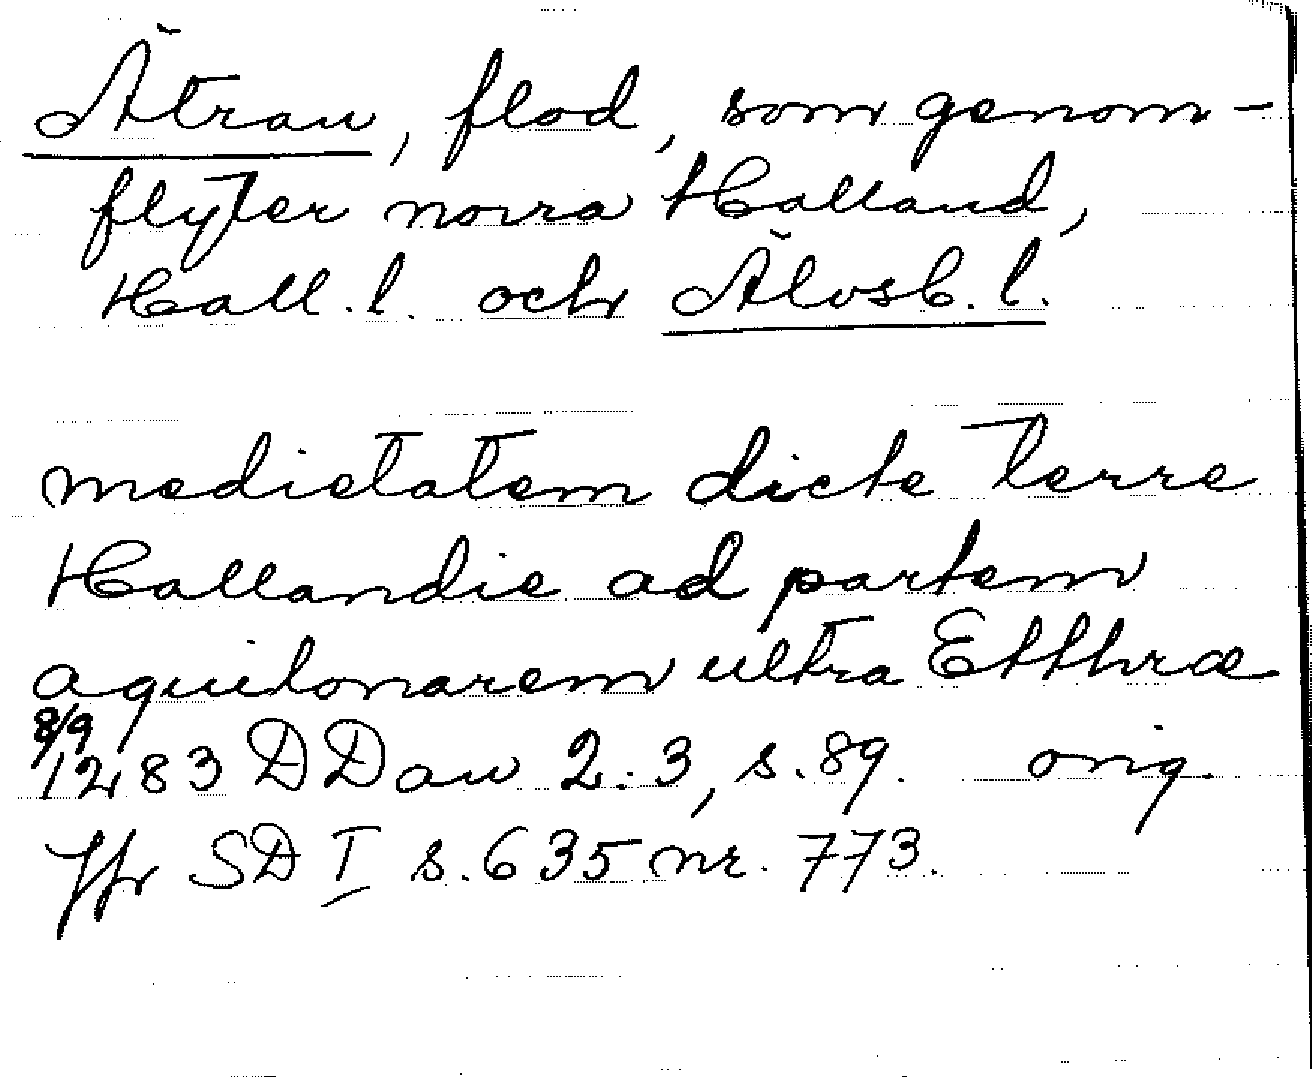 Ätran, flod, som genom-
flyter norra Halland,
Hall. l. och Älvsb. l.
medietatem dicte terre
Hallandie ad partem
aquilonarem ultra Etthræ
8/9
1283 DDan 2:3, s. 89. orig.
Jfr SD I s. 635 nr. 773.